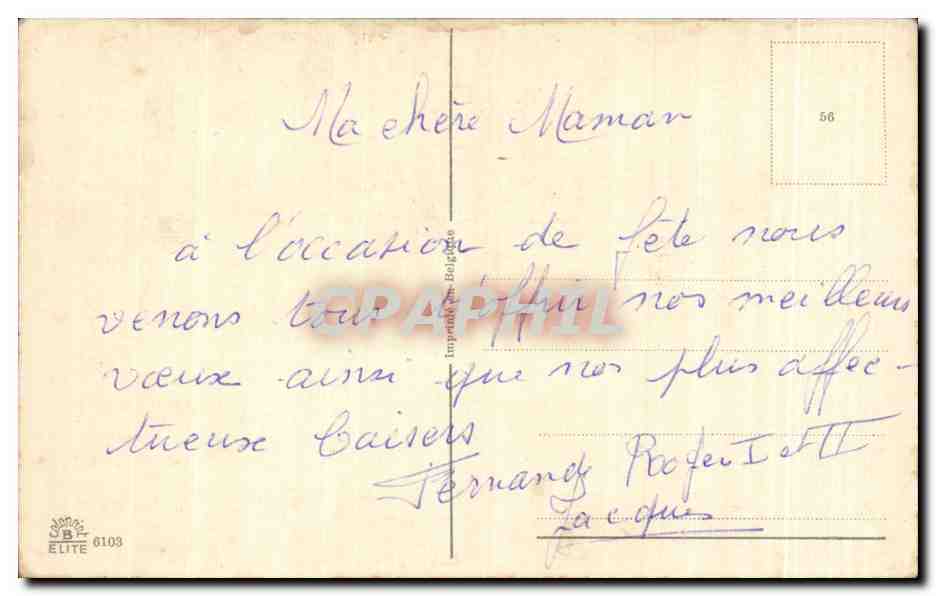 Ma chère Maman
56
à l'occasion de fête nous
venons tous d'offrir nos meilleurs
vœux ainsi que nos plus affec-
tueux baisers
Fernande Roger I et II
Jacques
Imprimé en Belgique
CPAPHIL
Colorprint
B
ELITE 6103